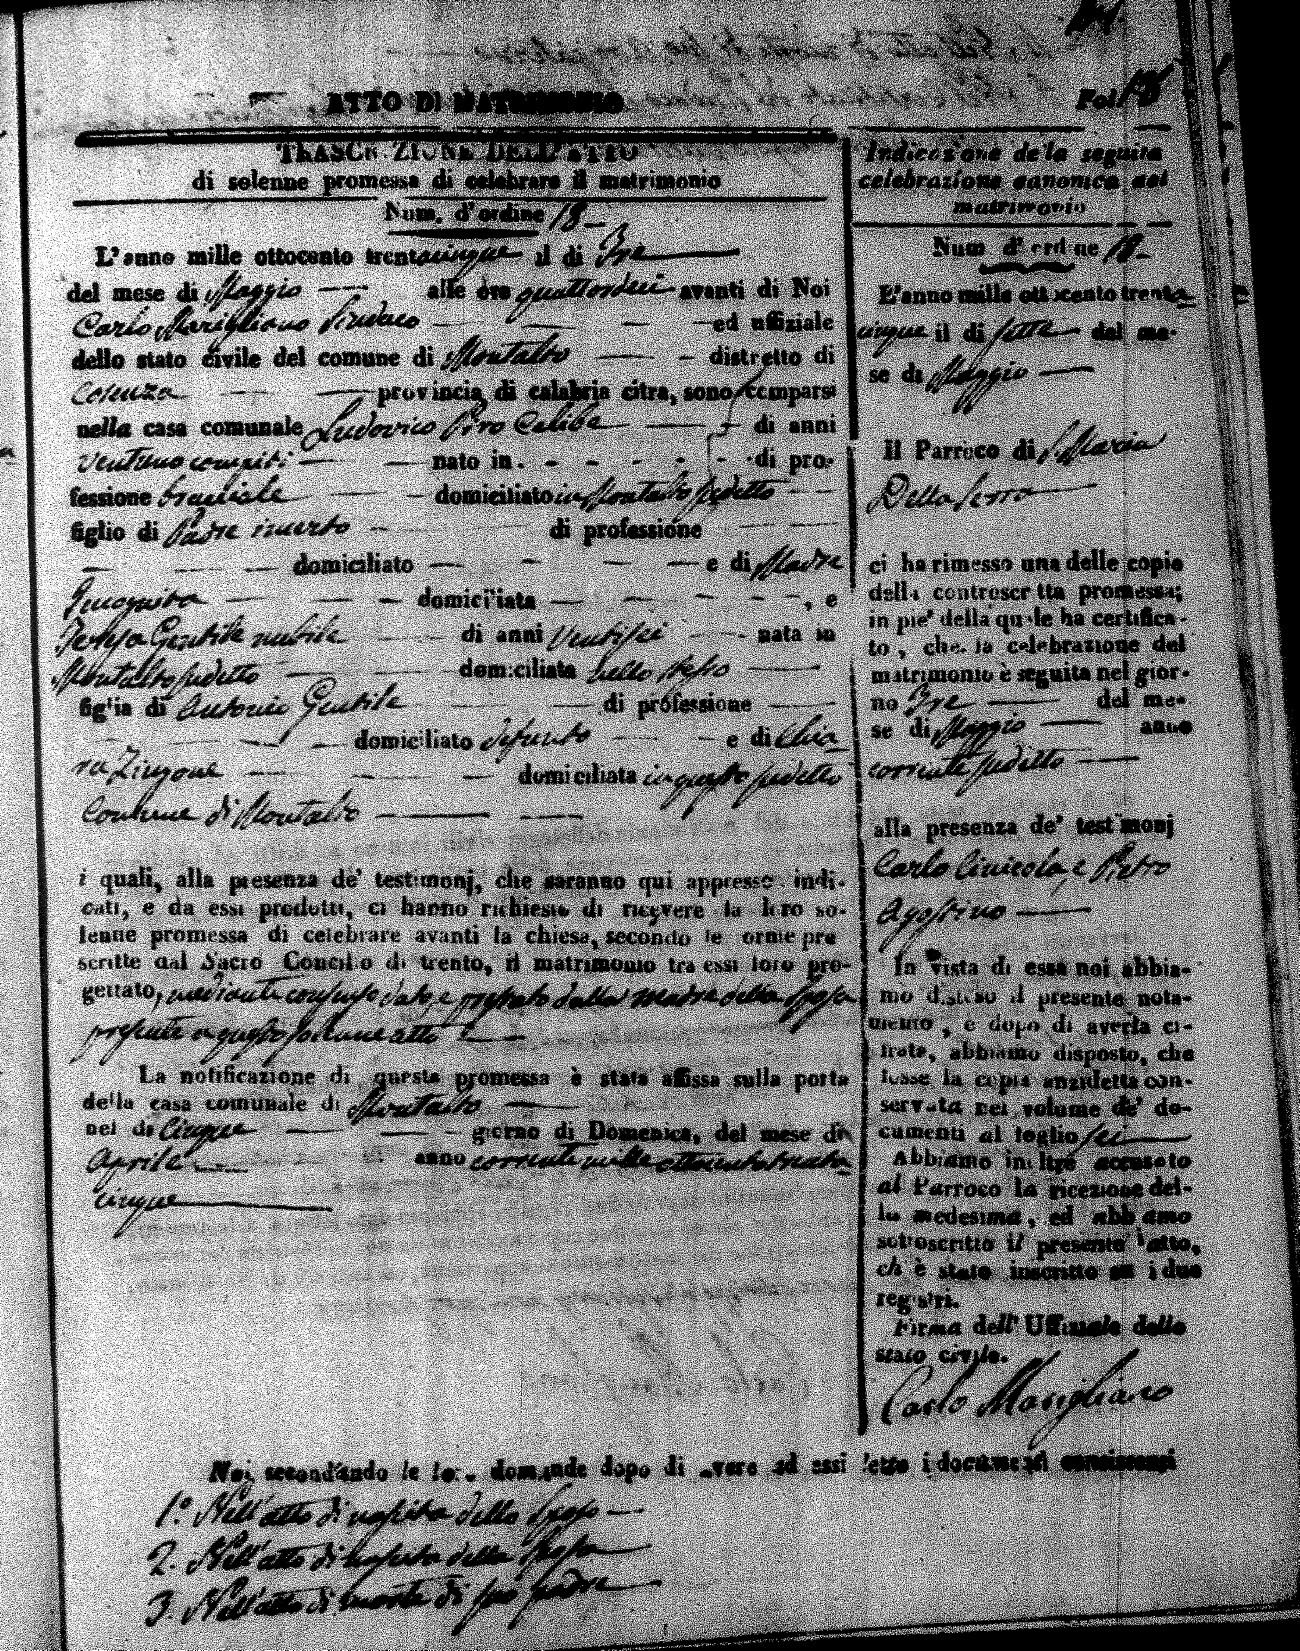 ATTO DI MATRIMONIO
Fol.
TRASCRIZIONE DELL'ATTO
di solenne promessa di celebrare il matrimonio
Num. d'ordine 18
L'anno mille ottocento trentacinque il di Tre
del mese di Maggio alle ore quattordeci avanti di Noi
Carlo Marigliano Sindaco ed uffiziale
dello stato civile del comune di Montalto distretto di
Cosenza provincia di calabria citra, sono comparsi
nella casa comunale Ludovico Piro Celibe di anni
ventuno compiti nato in di pro-
fessione bracciale domiciliato in Montalto sudetto
figlio di Padre incerto di professione
domiciliato e di Madre
Incognita domiciliata , e
Teresa Gentile nubile di anni Ventisei nata in
Montalto sudetto domiciliata nello stesso
figlia di Antonio Gentile di professione
domiciliato defunto e di Chia
ra Zingone domiciliata in questo sudetto
Comune di Montalto
i quali, alla presenza de' testimonj, che saranno qui appresso indi-
cati, e da essi prodotti, ci hanno richiesto di ricevere la loro so-
lenne promessa di celebrare avanti la chiesa, secondo le forme pre
scritte dal Sacro Concilio di trento, il matrimonio tra essi loro pro-
gettato, mediante consenso dato, e prestato dalla madre della sposa
presente in questo solenne atto
La notificazione di questa promessa è stata affissa sulla porta
della casa comunale di Montalto
nel di Cinque giorno di Domenica, del mese di
Aprile anno corrente mille ottocento trenta
cinque
Indicazione della seguita
celebrazione canonica del
matrimonio
Num d'ordine 18
L'anno mille ottocento trenta
cinque il di sette del me-
se di Maggio
Il Parroco di S. Maria
Della Serra
ci ha rimesso una delle copie
della controscritta promessa;
in pie' della quale ha certifica-
to, che la celebrazione del
matrimonio è seguita nel gior-
no Tre del me-
se di Maggio anno
corrente sudetto
alla presenza de' testimonj
Carlo Cinicola, e Pietro
Agostino
In vista di essa noi abbia-
mo disteso il presente nota-
mento, e dopo di averla ci-
frata, abbiamo disposto, che
fosse la copia anzidetta con-
servata nel volume de' do-
cumenti al foglio sei
Abbiamo inoltre accusato
al Parroco la ricezione del-
la medesima, ed abbiamo
sottoscritto il presente atto,
ch'è stato inscritto su i due
registri.
Firma dell'Uffiziale dello
stato civile.
Carlo Marigliano
Noi secondando le loro domande dopo di avere ad essi letto i documenti consistenti
1.° Nell'atto di nascita dello Sposo
2. Nell'atto di nascita della Sposa
3. Nell'atto di morte di suo padre